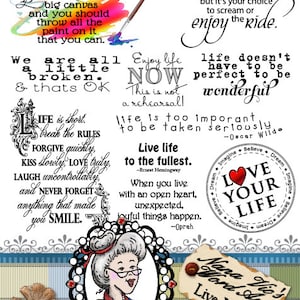 big canvas
and you should
throw all the
paint on it
that you can.
but it's your choice
to scream or
enjoy the ride.
We are all
a little
broken.
& thats OK
Enjoy life
NOW
This is not
a rehearsal!
life doesn't
have to be
perfect to be
wonderful
life is too important
to be taken seriously
~Oscar Wilde~
LIFE is short,
break the RULES
FORGIVE quickly,
KISS slowly, LOVE truly,
LAUGH uncontrollably,
and NEVER FORGET
anything that made
you SMILE.
Live life
to the fullest.
~Ernest Hemingway
When you live
with an open heart,
unexpected,
joyful things happen.
~Oprah
LOVE
YOUR
LIFE
Believe • Dream •
Imagine
Nana
Life
Live